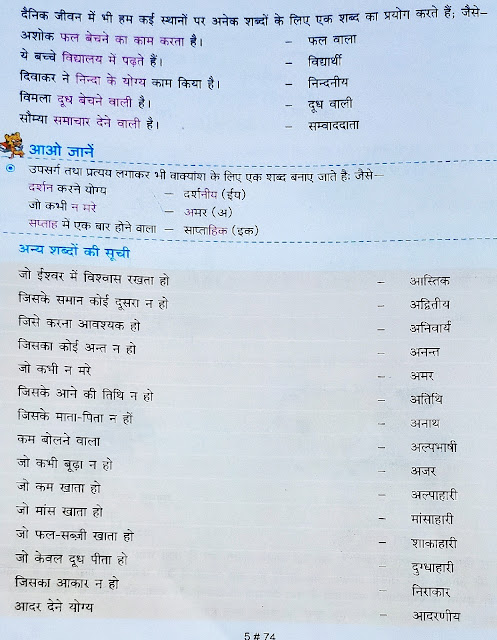 दैनिक जीवन में भी हम कई स्थानों पर अनेक शब्दों के लिए एक शब्द का प्रयोग करते हैं; जैसे—
अशोक फल बेचने का काम करता है। – फल वाला
ये बच्चे विद्यालय में पढ़ते हैं। – विद्यार्थी
दिवाकर ने निन्दा के योग्य काम किया है। – निन्दनीय
विमला दूध बेचने वाली है। – दूध वाली
सौम्या समाचार देने वाली है। – सम्वाददाता
आओ जानें
उपसर्ग तथा प्रत्यय लगाकर भी वाक्यांश के लिए एक शब्द बनाए जाते है; जैसे—
दर्शन करने योग्य – दर्शनीय (ईय)
जो कभी न मरे – अमर (अ)
सप्ताह में एक बार होने वाला – साप्ताहिक (इक)
अन्य शब्दों की सूची
जो ईश्वर में विश्वास रखता हो – आस्तिक
जिसके समान कोई दूसरा न हो – अद्वितीय
जिसे करना आवश्यक हो – अनिवार्य
जिसका कोई अन्त न हो – अनन्त
जो कभी न मरे – अमर
जिसके आने की तिथि न हो – अतिथि
जिसके माता-पिता न हों – अनाथ
कम बोलने वाला – अल्पभाषी
जो कभी बूढ़ा न हो – अजर
जो कम खाता हो – अल्पाहारी
जो मांस खाता हो – मांसाहारी
जो फल-सब्ज़ी खाता हो – शाकाहारी
जो केवल दूध पीता हो – दुग्धाहारी
जिसका आकार न हो – निराकार
आदर देने योग्य – आदरणीय
5 # 74